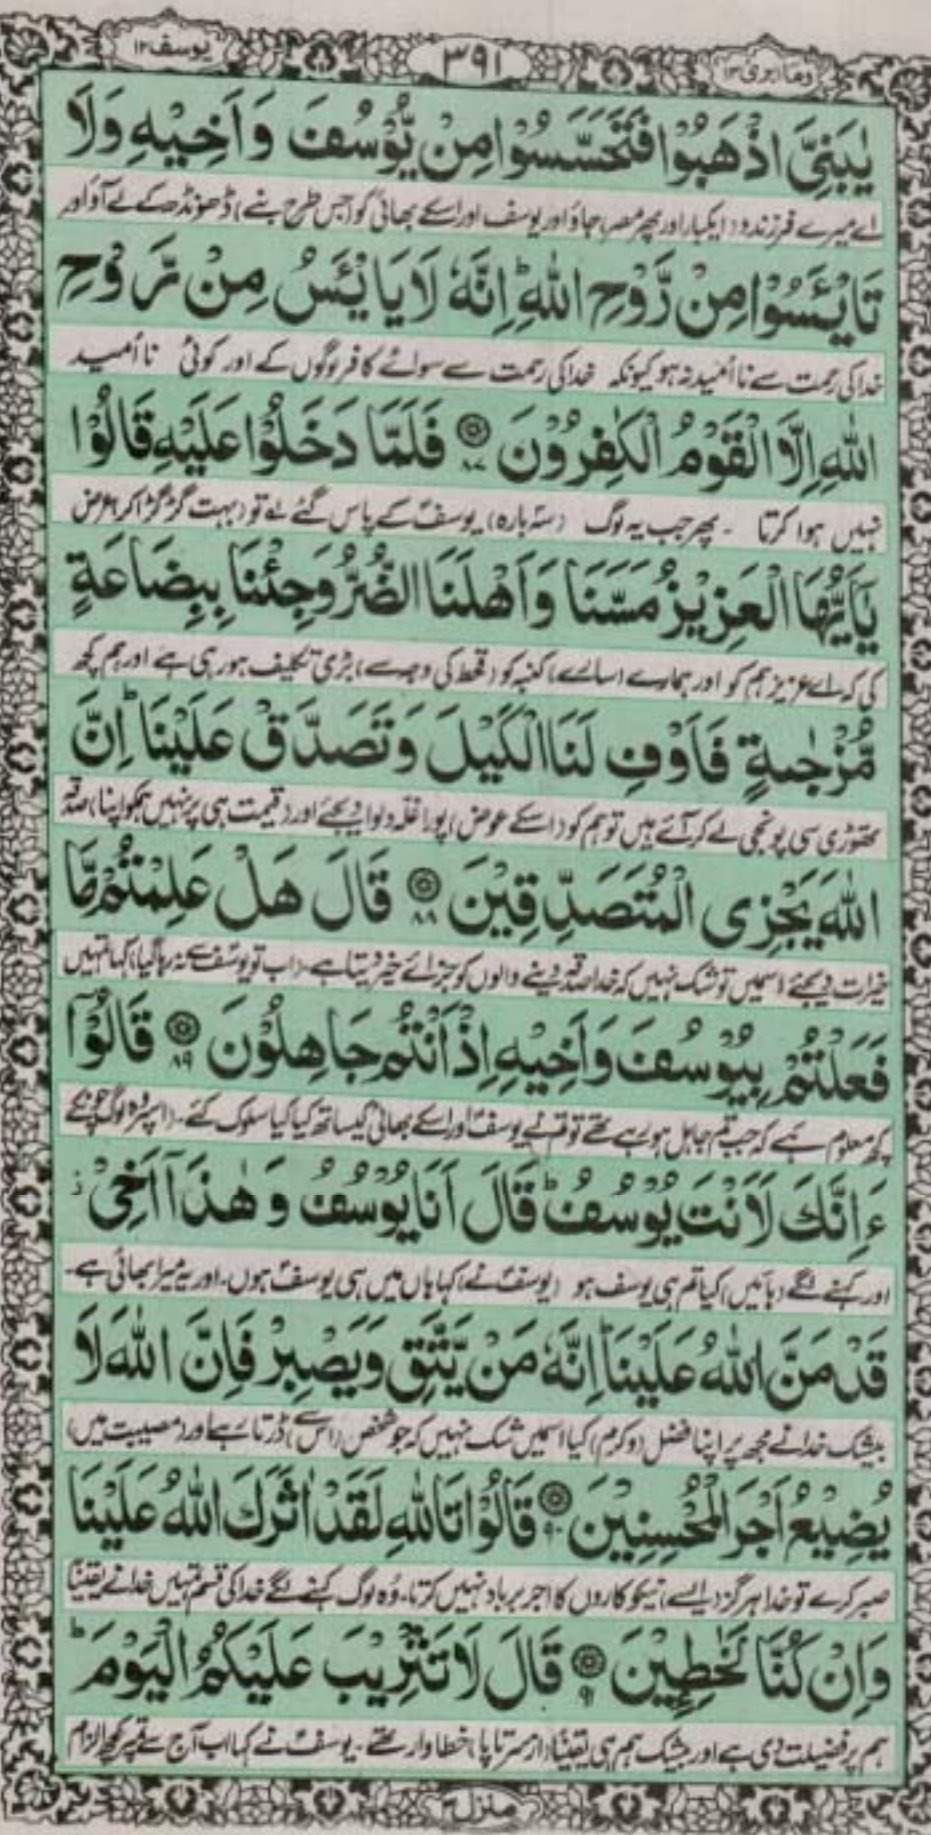 وما ابرئ ١٣
٣٩١
یوسف ١٢
یٰبَنِیَّ اذْهَبُوْا فَتَحَسَّسُوْا مِنْ یُّوْسُفَ وَاَخِیْهِ وَلَا
اے میرے فرزندو (ایکبار اور پھر مصر) جاؤ اور یوسف اور اسکے بھائی کو (جس طرح بنے) ڈھونڈھ کے لے آؤ اور
تَایْـَٔسُوْا مِنْ رَّوْحِ اللّٰهِ ؕ اِنَّهٗ لَا یَایْـَٔسُ مِنْ رَّوْحِ
خدا کی رحمت سے نا امید نہ ہو کیونکہ خدا کی رحمت سے سوائے کافر لوگوں کے اور کوئی نا امید
اللّٰهِ اِلَّا الْقَوْمُ الْکٰفِرُوْنَ ۝٨٧ فَلَمَّا دَخَلُوْا عَلَیْهِ قَالُوْا
نہیں ہوا کرتا ۔ پھر جب یہ لوگ (سہ بارہ) یوسفؑ کے پاس گئے تو (بہت گڑگڑا کر) عرض
یٰۤاَیُّهَا الْعَزِیْزُ مَسَّنَا وَاَهْلَنَا الضُّرُّ وَجِئْنَا بِبِضَاعَةٍ
کی کہ اے عزیز ہم کو اور ہمارے (سارے) کنبہ کو (قحط کی وجہ سے) بڑی تکلیف ہو رہی ہے اور ہم کچھ
مُّزْجٰىةٍ فَاَوْفِ لَنَا الْکَیْلَ وَتَصَدَّقْ عَلَیْنَا ؕ اِنَّ
تھوڑی سی پونجی لے کر آئے ہیں تو ہم کو (اسکے عوض) پورا غلہ دلوا دیجئے اور (قیمت ہی پر نہیں) ہمکو (اپنا) صدقہ
اللّٰهَ یَجْزِی الْمُتَصَدِّقِیْنَ ۝٨٨ قَالَ هَلْ عَلِمْتُمْ مَّا
خیرات دیجئے اسمیں تو شک نہیں کہ خدا صدقہ دینے والوں کو جزائے خیر دیتا ہے۔ (اب تو یوسفؑ سے نہ رہا گیا) کہا تمہیں
فَعَلْتُمْ بِیُوْسُفَ وَاَخِیْهِ اِذْ اَنْتُمْ جَاهِلُوْنَ ۝٨٩ قَالُوْۤا
کچھ معلوم ہے کہ جب تم جاہل ہو رہے تھے تو تم نے یوسفؑ اور اسکے بھائی کیساتھ کیا کیا سلوک کئے۔ (اسپر وہ لوگ چونکے
ءَاِنَّکَ لَاَنْتَ یُوْسُفُ ؕ قَالَ اَنَا یُوْسُفُ وَ هٰذَاۤ اَخِیْ ز
اور کہنے لگے (ہائیں) کیا تم ہی یوسف ہو (یوسفؑ نے) کہا ہاں میں ہی یوسفؑ ہوں۔ اور یہ میرا بھائی ہے۔
قَدْ مَنَّ اللّٰهُ عَلَیْنَا ؕ اِنَّهٗ مَنْ یَّتَّقِ وَیَصْبِرْ فَاِنَّ اللّٰهَ لَا
بیشک خدا نے مجھ پر اپنا فضل (و کرم) کیا اسمیں شک نہیں کہ جو شخص (اس سے) ڈرتا رہے اور (مصیبت میں)
یُضِیْعُ اَجْرَ الْمُحْسِنِیْنَ ۝٩٠ قَالُوْا تَاللّٰهِ لَقَدْ اٰثَرَکَ اللّٰهُ عَلَیْنَا
صبر کرے تو خدا ہرگز (ایسے) نیکوکاروں کا اجر برباد نہیں کرتا۔ وہ لوگ کہنے لگے خدا کی قسم تمہیں خدا نے یقیناً
وَاِنْ کُنَّا لَخٰطِـِٕیْنَ ۝٩١ قَالَ لَا تَثْرِیْبَ عَلَیْکُمُ الْیَوْمَ ؕ
ہم پر فضیلت دی ہے اور بیشک ہم ہی یقیناً (از سر تا پا) خطا وار تھے۔ یوسفؑ نے کہا اب آج سے تم پر کچھ الزام
منزل ٣